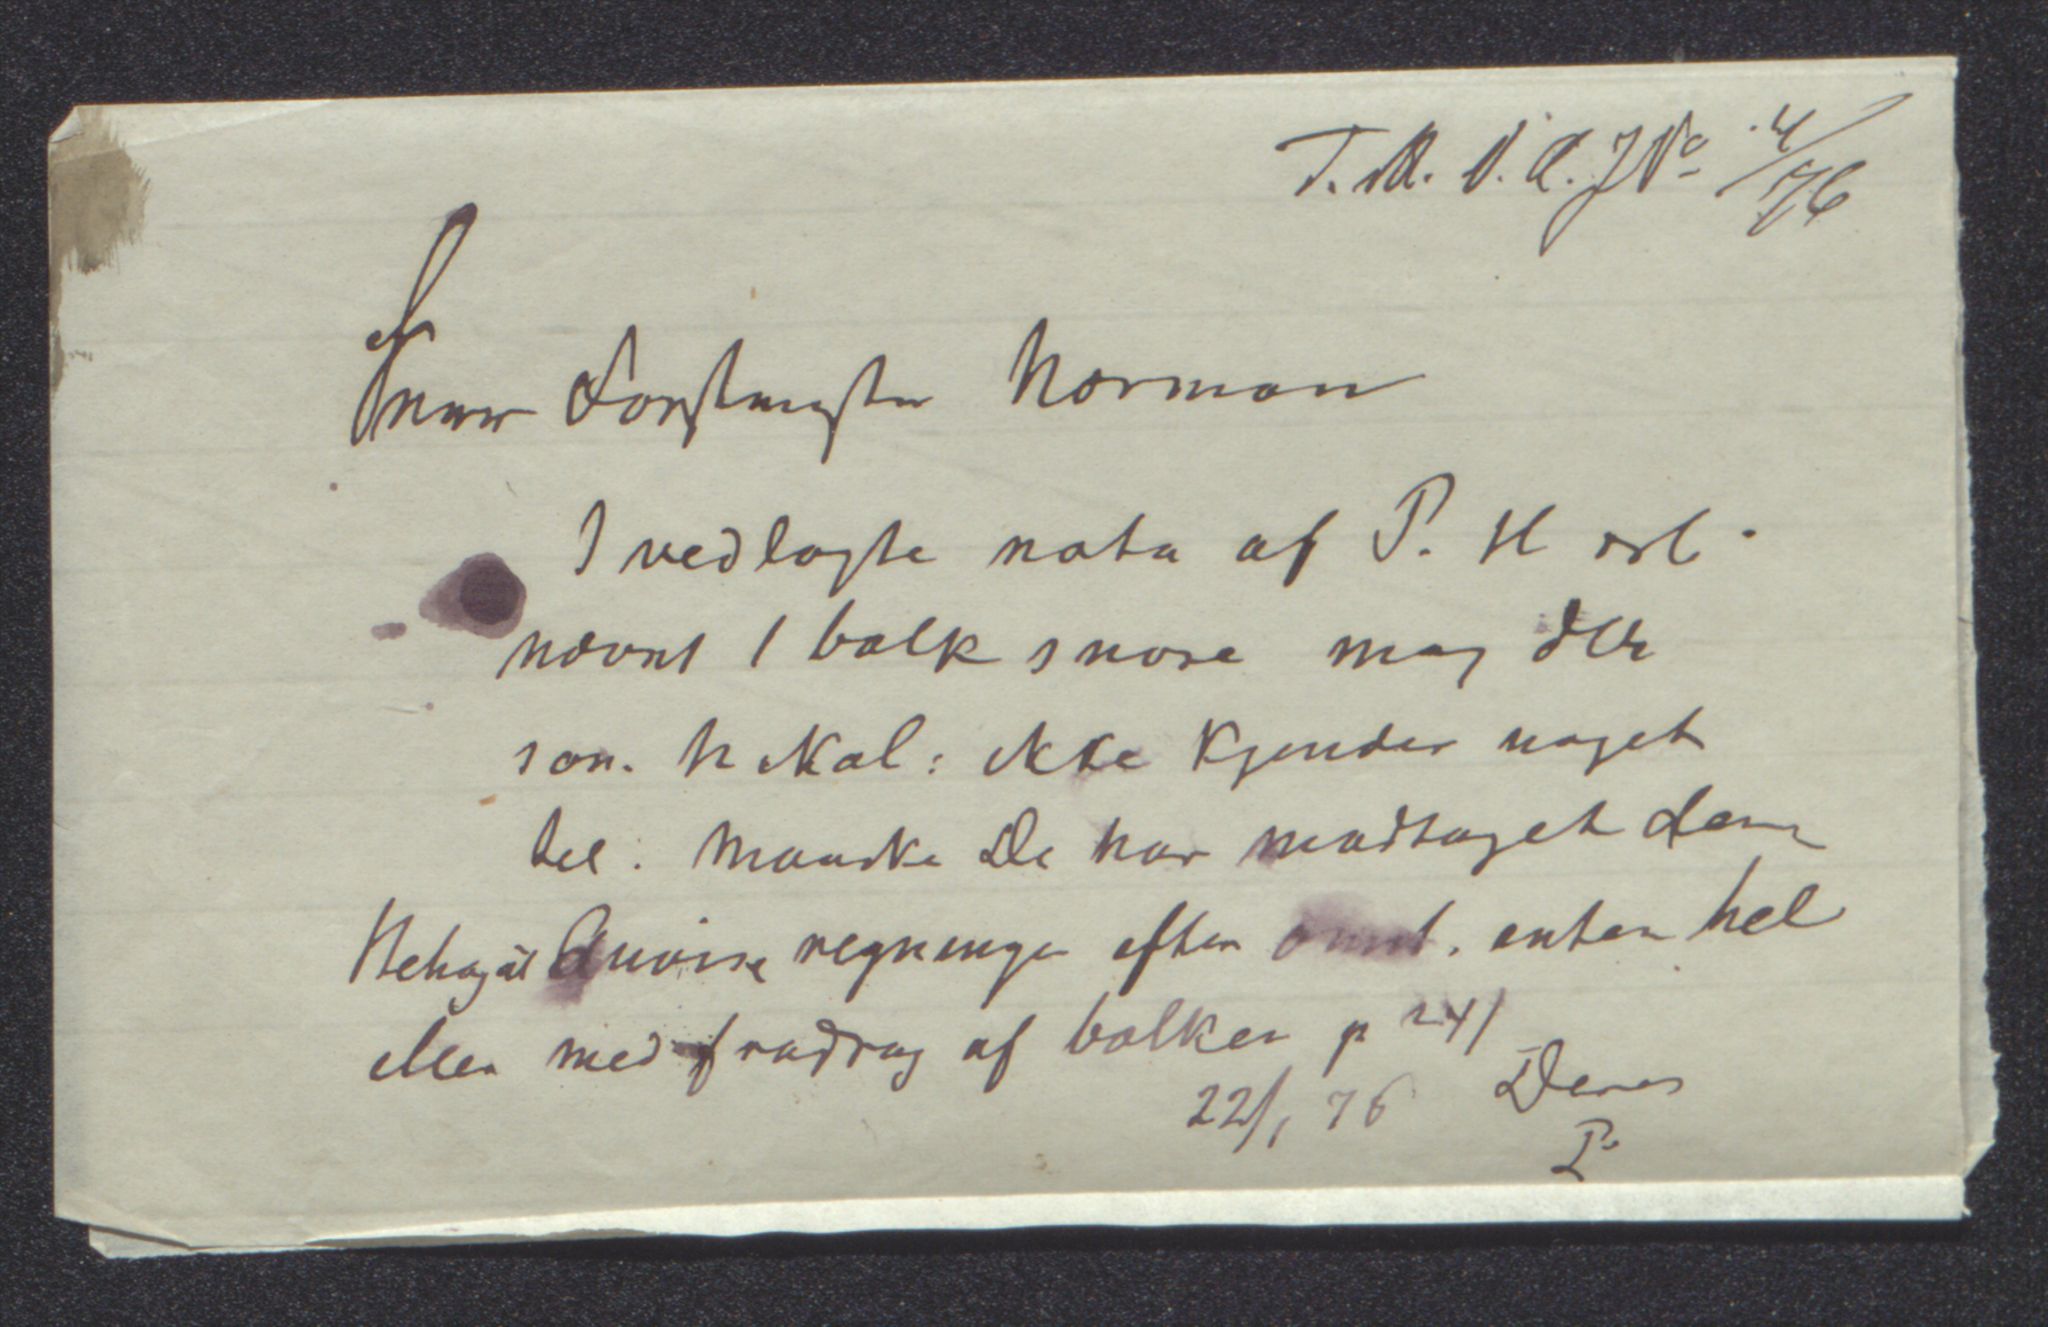 T.M.V.A. JNo 4/76
Herr Forstmester Norman
I vedlagte nota af P. H
nævnt 1 balk snore
som ikke kjender noget
til. Maaske De har modtaget dem
Behag at Anvise regningen efter enten hel
eller med fradrag af balken p 24/
22/1 76 Deres
P